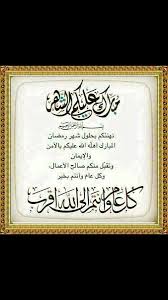 مبارك عليكم الشهر
بسم الله الرحمن الرحيم
نهنئكم بحلول شهر رمضان
المبارك أهله الله عليكم بالأمن
والإيمان
وتقبل منكم صالح الأعمال،
وكل عام وأنتم بخير
كل عام وأنتم إلى الله أقرب